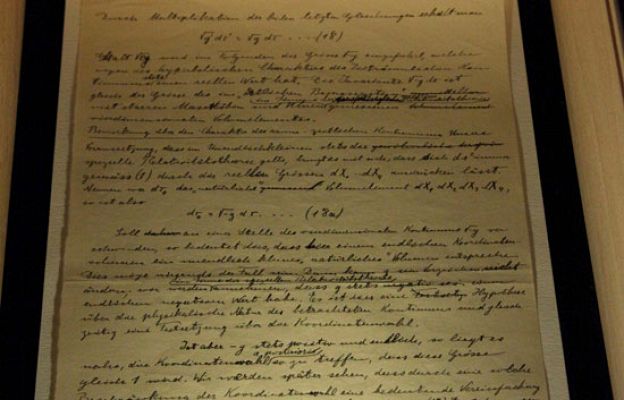 Durch Multiplikation der beiden letzten Gleichungen erhält man
√g' dτ' = √g dτ .... (18)
Statt √g wird im Folgenden die Grösse √-g eingeführt, welche
wegen des hyperbolischen Charakters des zeiträumlichen Kon-
tinuums stets reellen Wert hat. Die Invariante √-g dτ ist
gleich der Grösse des im
mit starren Massstäben und Uhren gemessenen
vierdimensionalen Volumelementes.
Bemerkung über den Charakter des raum-zeitlichen Kontinuums Unsere
Voraussetzung, dass im Unendlichkleinen stets die
spezielle Relativitätstheorie gelte, bringt es mit sich, dass sich ds² immer
gemäss (1) durch die reellen Grössen dX₁ .. dX₄ ausdrücken lässt.
Nennen wir dτ₀ das "natürliche" Volumelement dX₁ dX₂ dX₃ dX₄,
so ist also
dτ₀ = √-g dτ .... (18a)
Soll an einer Stelle des vierdimensionalen Kontinuums √-g ver-
schwinden, so bedeutet dies, dass hier einem endlichen Koordinaten-
volumen ein unendlich kleines "natürliches" Volumen entspreche.
Dies möge nirgends der Fall sein. Dann kann g sein Vorzeichen nicht
ändern, wir werden annehmen, dass g stets negativ sei, einen
endlichen negativen Wert habe. Es ist dies eine Hypothese
über die physikalische Natur des betrachteten Kontinuums und gleich-
zeitig eine Festsetzung über die Koordinatenwahl.
Ist aber -g stets positiv und endlich, so liegt es
nahe, die Koordinatenwahl a posteriori so zu treffen, dass diese Grösse
gleich 1 wird. Wir werden später sehen, dass durch eine solche
Beschränkung der Koordinatenwahl eine bedeutende Vereinfachung